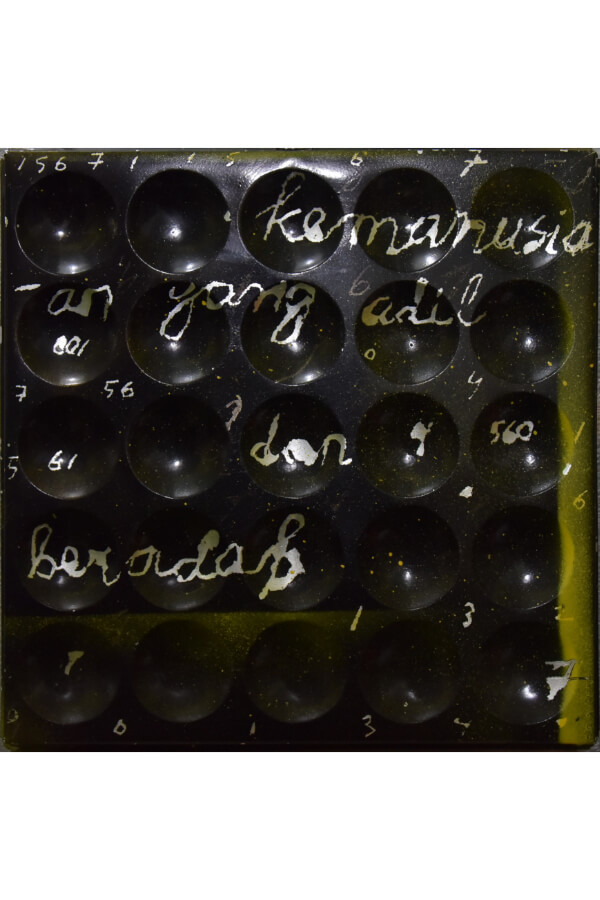 156 7 1 1 5 6 7
kemanusia
-an yang adil
001 6
0
7 56 4
7
5 61 dan 9 560 1
6
beradab
1 3 2
7
0 0 1 3 4